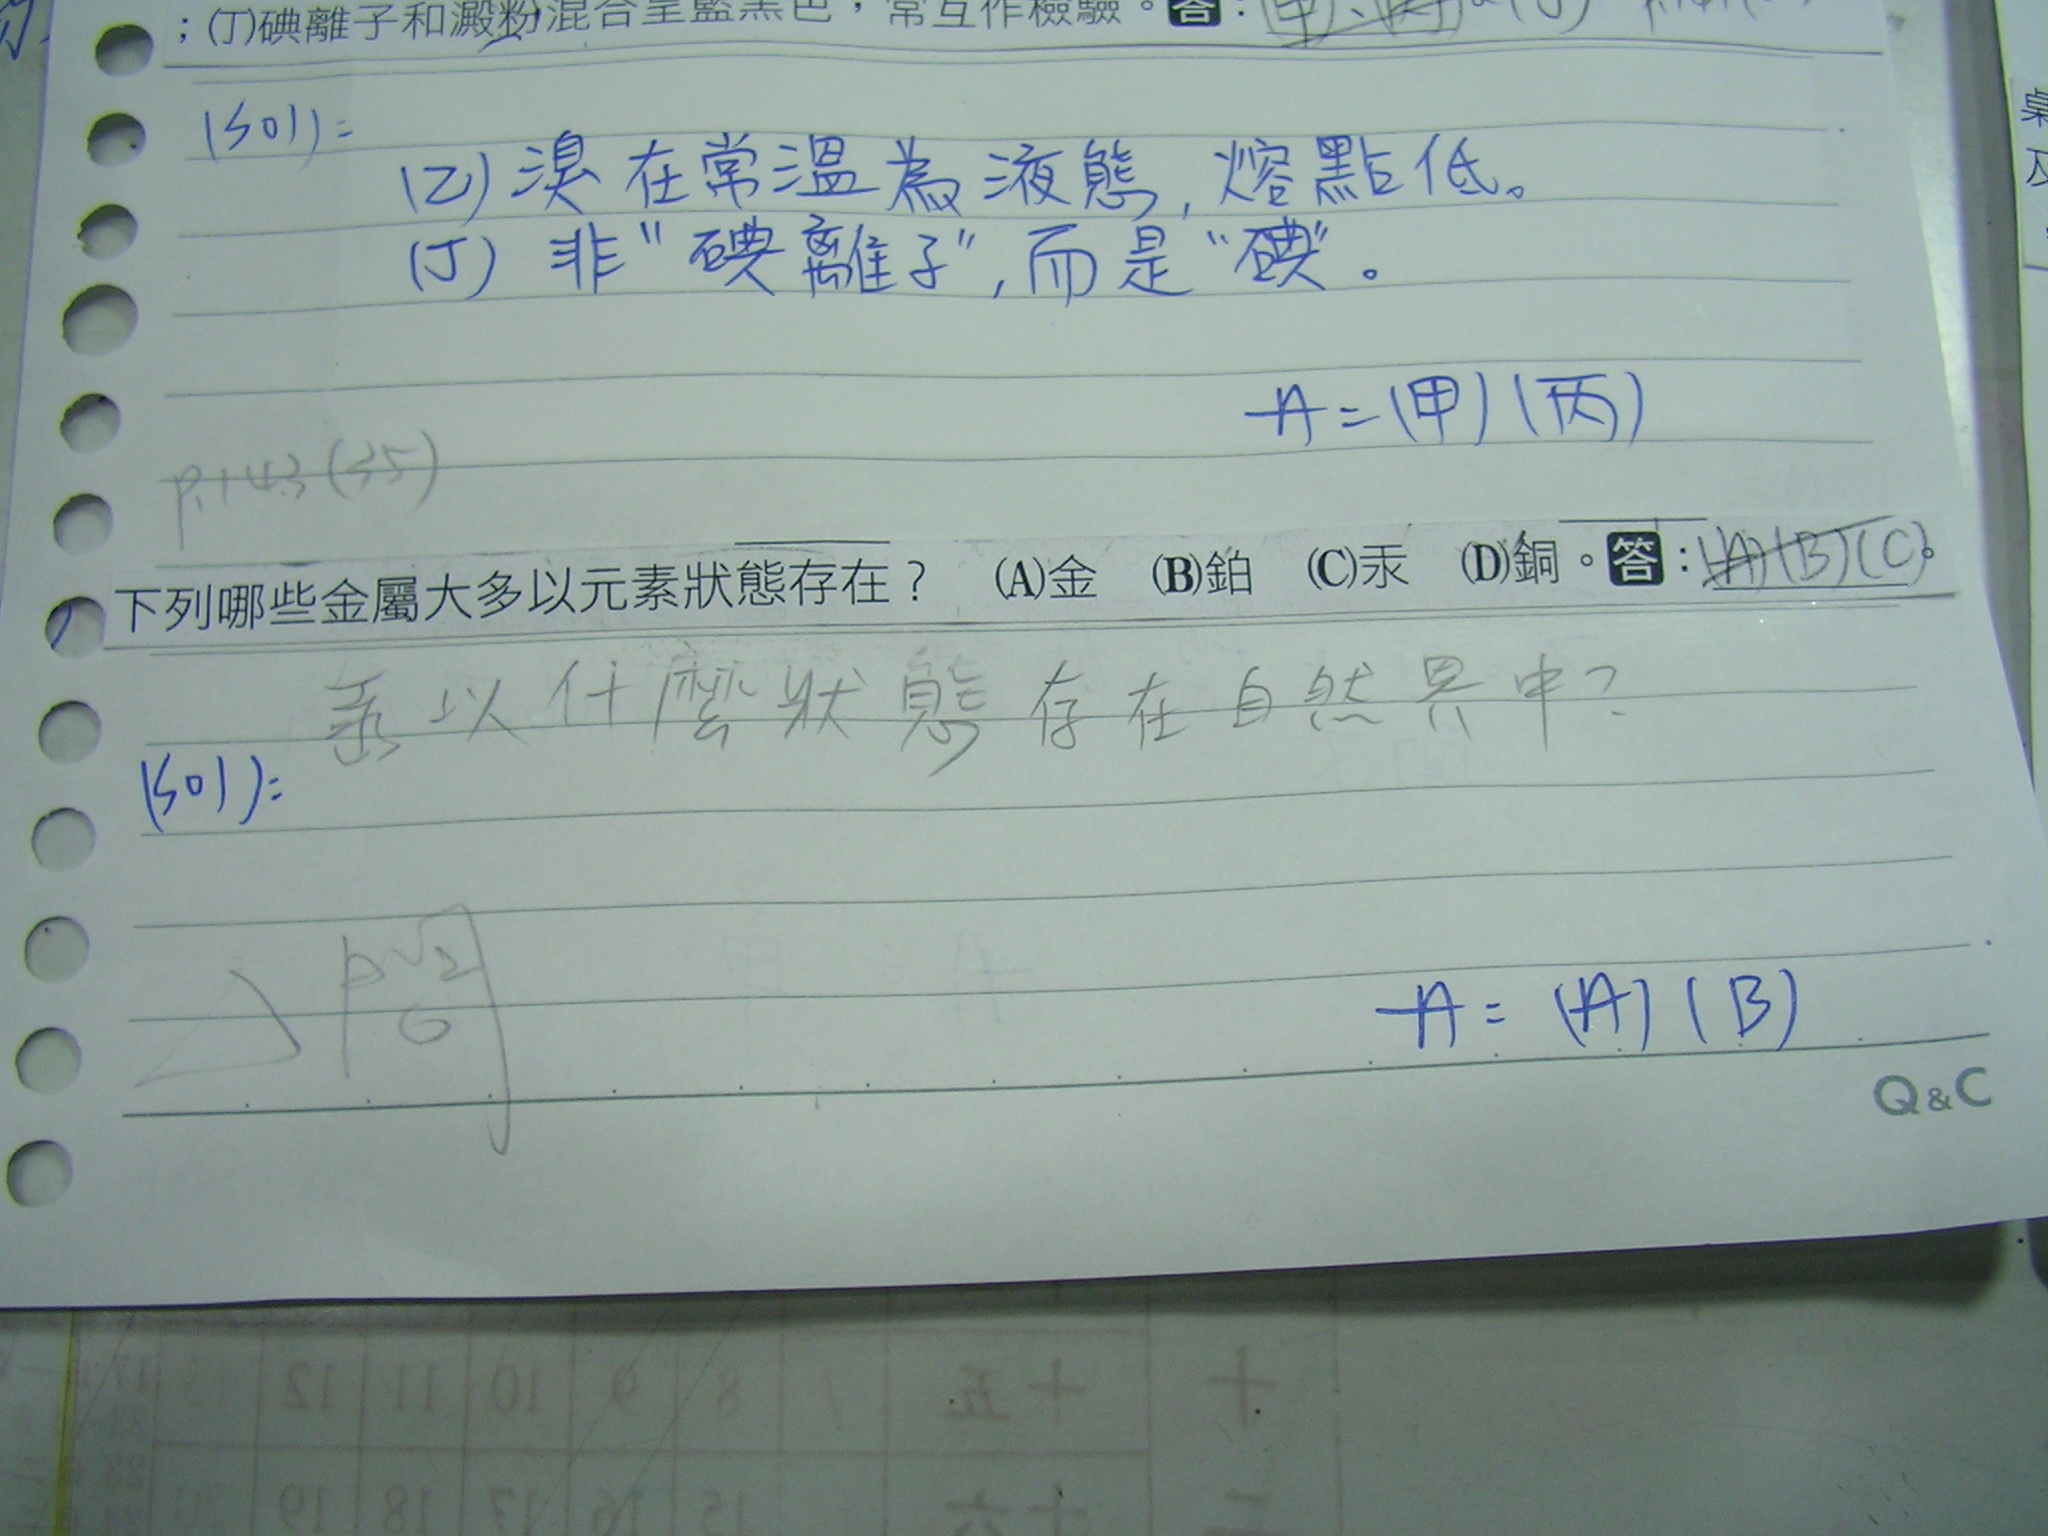 ;(丁)碘離子和澱粉混合呈藍黑色,常互作檢驗。答:
(sol):
(乙)溴在常溫為液態,熔點低。
(丁)非“碘離子”,而是“碘”。
A=(甲)(丙)
p.143(35)
下列哪些金屬大多以元素狀態存在? (A)金 (B)鉑 (C)汞 (D)銅。答:(A)(B)(C)。
汞以什麼狀態存在自然界中?
(sol):
A=(A)(B)
Q&C
十五 7 8 9 10 11 12 13
十
十六 15 16 17 18 19 20
二